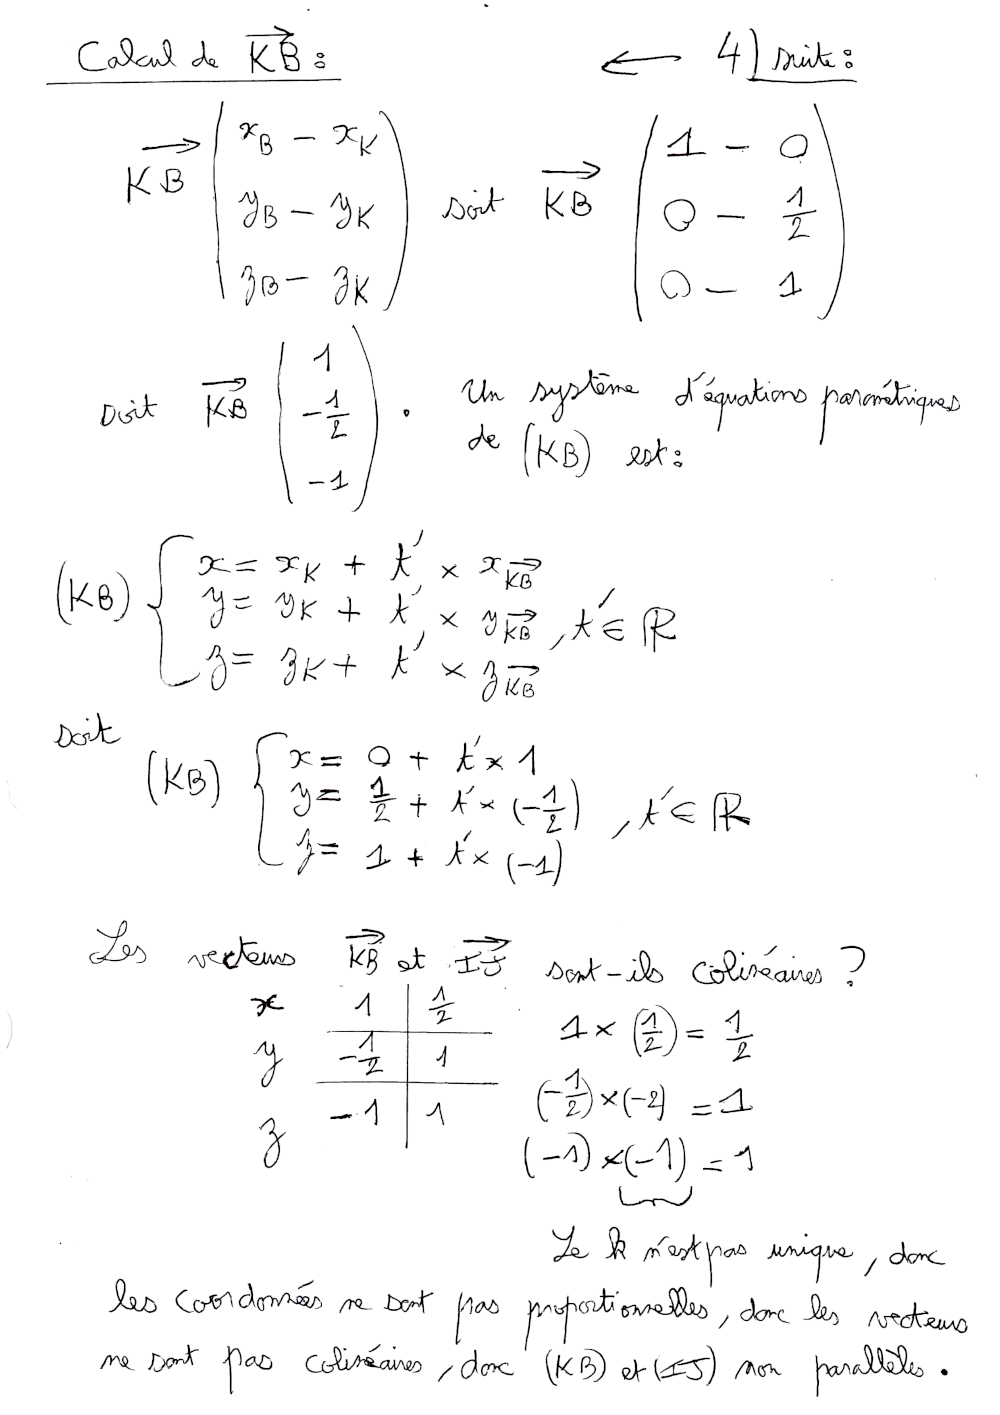 Calcul de $\overrightarrow{KB}$ : ← 4) suite :
$\overrightarrow{KB} \begin{pmatrix} x_B - x_K \\ y_B - y_K \\ z_B - z_K \end{pmatrix}$ soit $\overrightarrow{KB} \begin{pmatrix} 1 - 0 \\ 0 - \frac{1}{2} \\ 0 - 1 \end{pmatrix}$
soit $\overrightarrow{KB} \begin{pmatrix} 1 \\ -\frac{1}{2} \\ -1 \end{pmatrix}$. Un système d'équations paramétriques
de (KB) est :
(KB) $\begin{cases} x = x_K + t' \times x_{\overrightarrow{KB}} \\ y = y_K + t' \times y_{\overrightarrow{KB}} \\ z = z_K + t' \times z_{\overrightarrow{KB}} \end{cases}$, $t' \in \mathbb{R}$
soit
(KB) $\begin{cases} x = 0 + t' \times 1 \\ y = \frac{1}{2} + t' \times (-\frac{1}{2}) \\ z = 1 + t' \times (-1) \end{cases}$, $t' \in \mathbb{R}$
Les vecteurs $\overrightarrow{KB}$ et $\overrightarrow{IJ}$ sont-ils colinéaires ?
x | 1 | $\frac{1}{2}$ $1 \times (\frac{1}{2}) = \frac{1}{2}$
y | $-\frac{1}{2}$ | 1 $(-\frac{1}{2}) \times (-2) = 1$
z | -1 | 1 $(-1) \times (-1) = 1$
Le k n'est pas unique, donc
les coordonnées ne sont pas proportionnelles, donc les vecteurs
ne sont pas colinéaires, donc (KB) et (IJ) non parallèles.